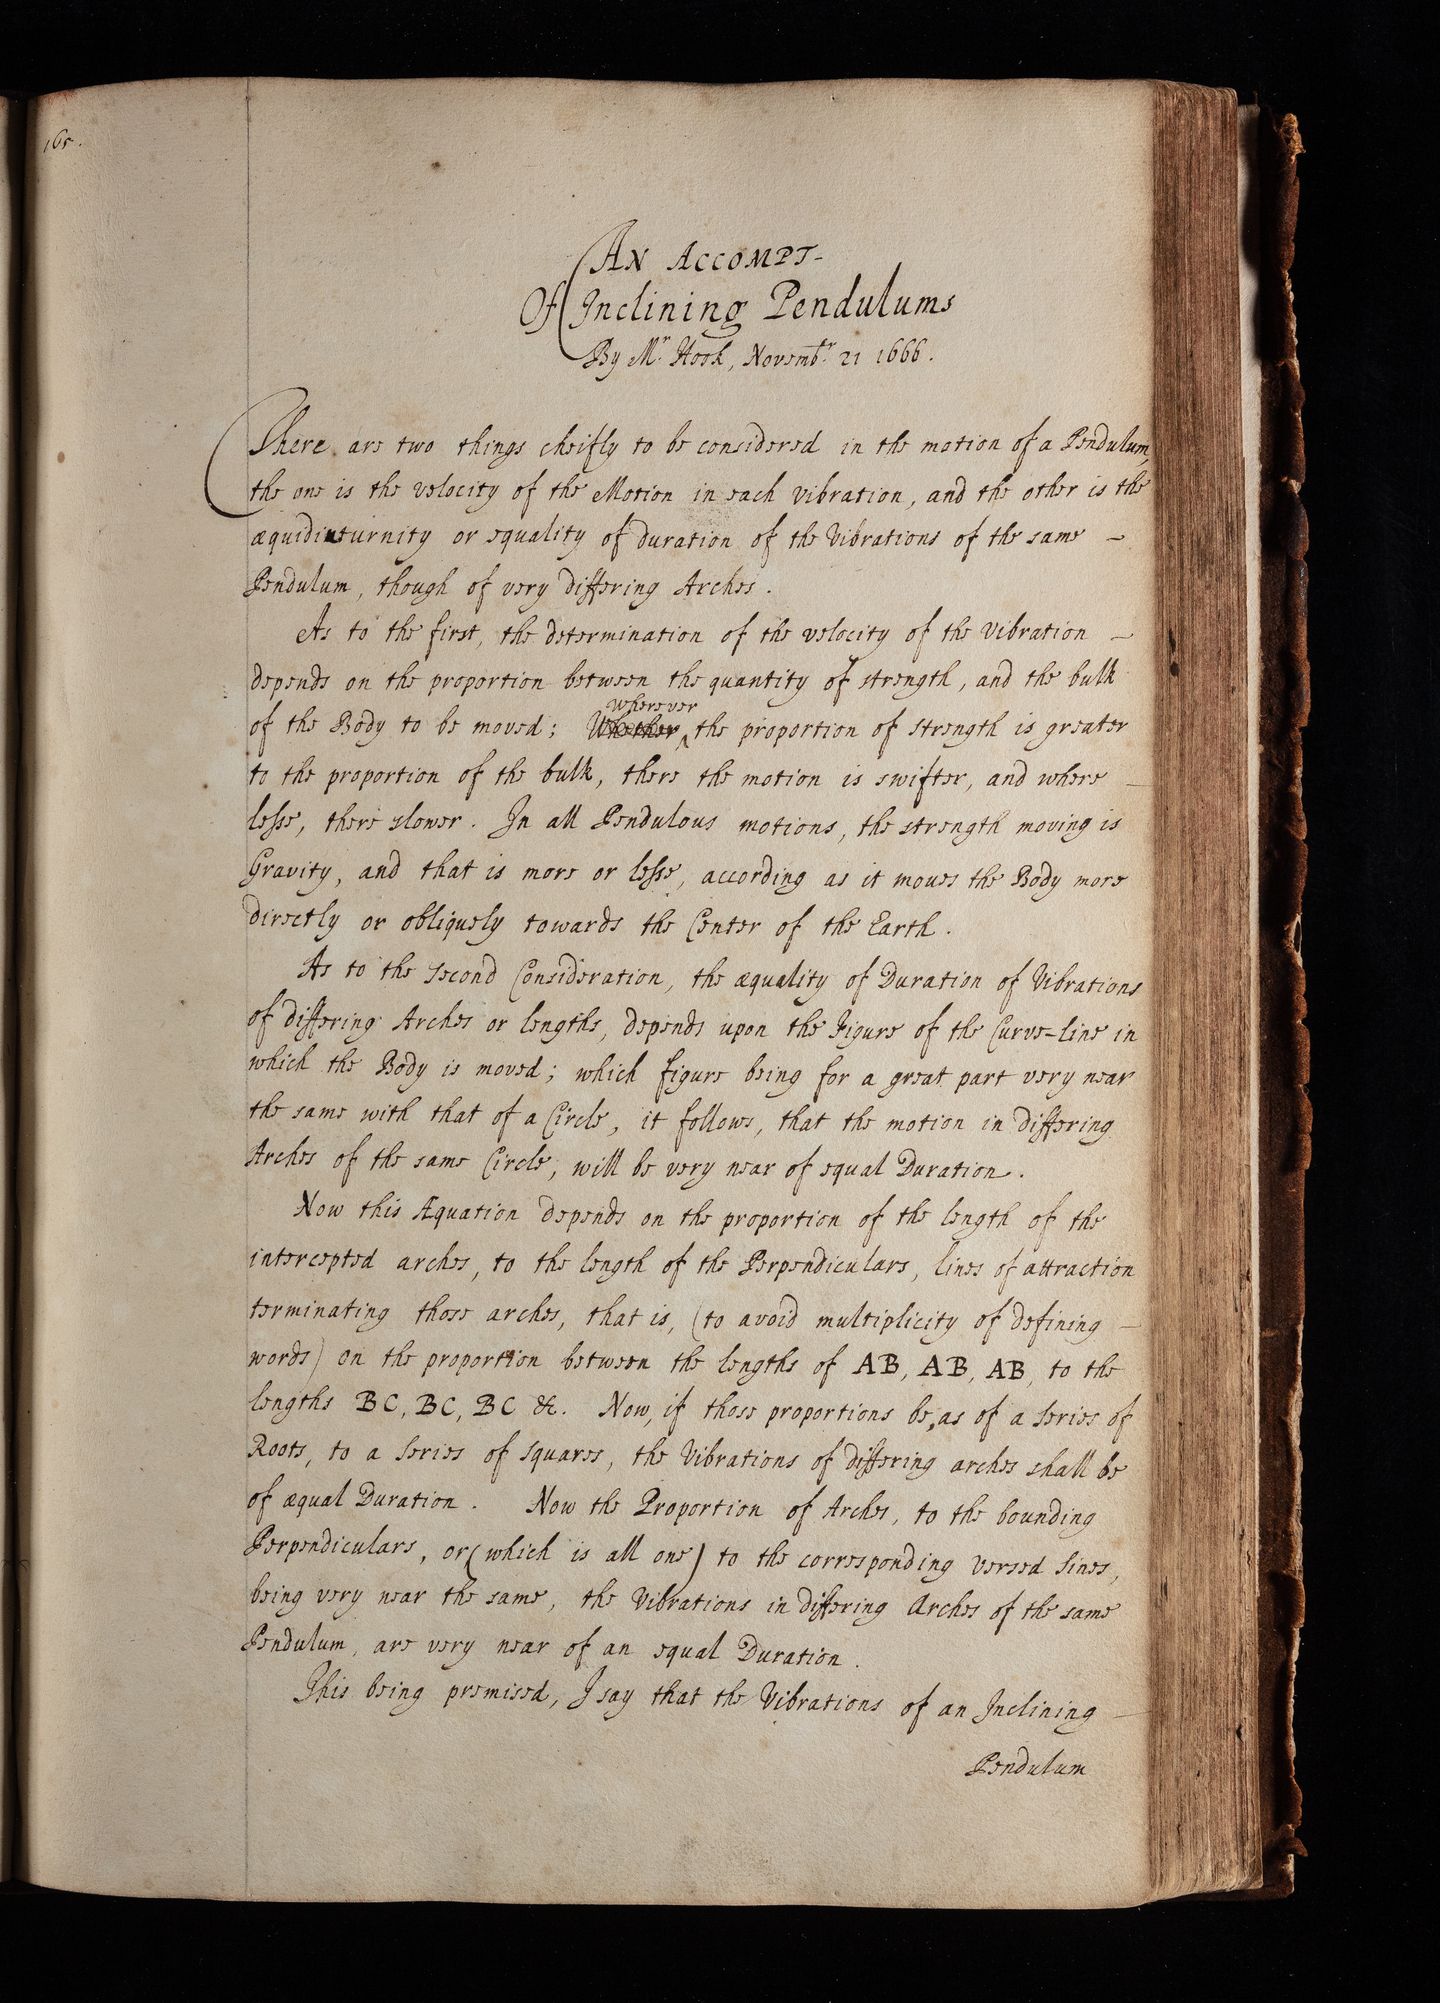 165.
AN ACCOMPT-
Of Inclining Pendulums
By Mr. Hook, Novembr. 21 1666.
There are two things cheifly to be considered in the motion of a Pendulum,
the one is the velocity of the Motion in each vibration, and the other is the
æquidiuturnity or equality of duration of the Vibrations of the same –
Pendulum, though of very differing Arches.
As to the first, the determination of the velocity of the Vibration –
depends on the proportion between the quantity of strength, and the bulk
wherever
of the Body to be moved; Whether ‸ the proportion of strength is greater
to the proportion of the bulk, there the motion is swifter, and where –
lesse, there slower. In all Pendulous motions, the strength moving is
Gravity, and that is more or lesse, according as it moues the Body more
directly or obliquely towards the Center of the Earth.
As to the second Consideration, the æquality of Duration of Vibrations
of differing Arches or lengths, depends upon the Figure of the Curve-line in
which the Body is moved; which figure being for a great part very near
the same with that of a Circle, it follows, that the motion in differing
Arches of the same Circle, will be very near of equal Duration.
Now this Æquation depends on the proportion of the length of the
intercepted arches, to the length of the Perpendiculars, lines of attraction
terminating those arches, that is, (to avoid multiplicity of defining –
words) on the proportion between the lengths of AB, AB, AB, to the
lengths BC, BC, BC &c. Now, if those proportions be, as of a series of
Roots, to a series of squares, the Vibrations of differing arches shall be
of æqual Duration. Now the Proportion of Arches, to the bounding
Perpendiculars, or (which is all one) to the corresponding versed sines,
being very near the same, the Vibrations in differing Arches of the same
Pendulum, are very near of an equal Duration.
This being premised, I say that the Vibrations of an Inclining –
Pendulum